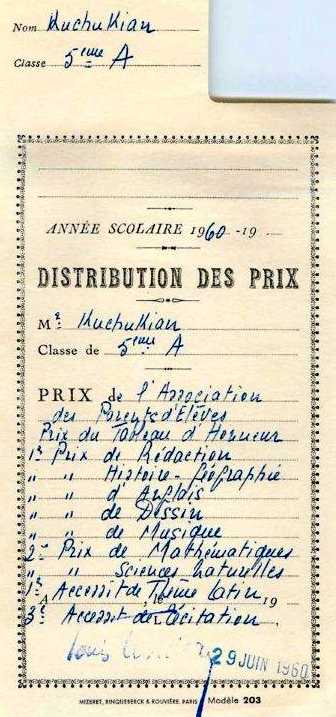 Nom Kuchukian
Classe 5ème A
ANNÉE SCOLAIRE 1960-19
DISTRIBUTION DES PRIX
Mr Kuchukian
Classe de 5ème A
PRIX de l'Association
des Parents d'Elèves
Prix du Tableau d'Honneur
1er Prix de Rédaction
" " Histoire-Géographie
" " d'Anglais
" " de Dessin
" " de Musique
2e Prix de Mathématiques
" " Sciences naturelles
1er Accessit de Thème Latin 19
3e Accessit de Récitation
Louis
29 JUIN 1960
MIZERET, RINQUEBERCK & ROUVIÈRE, PARIS Modèle 203